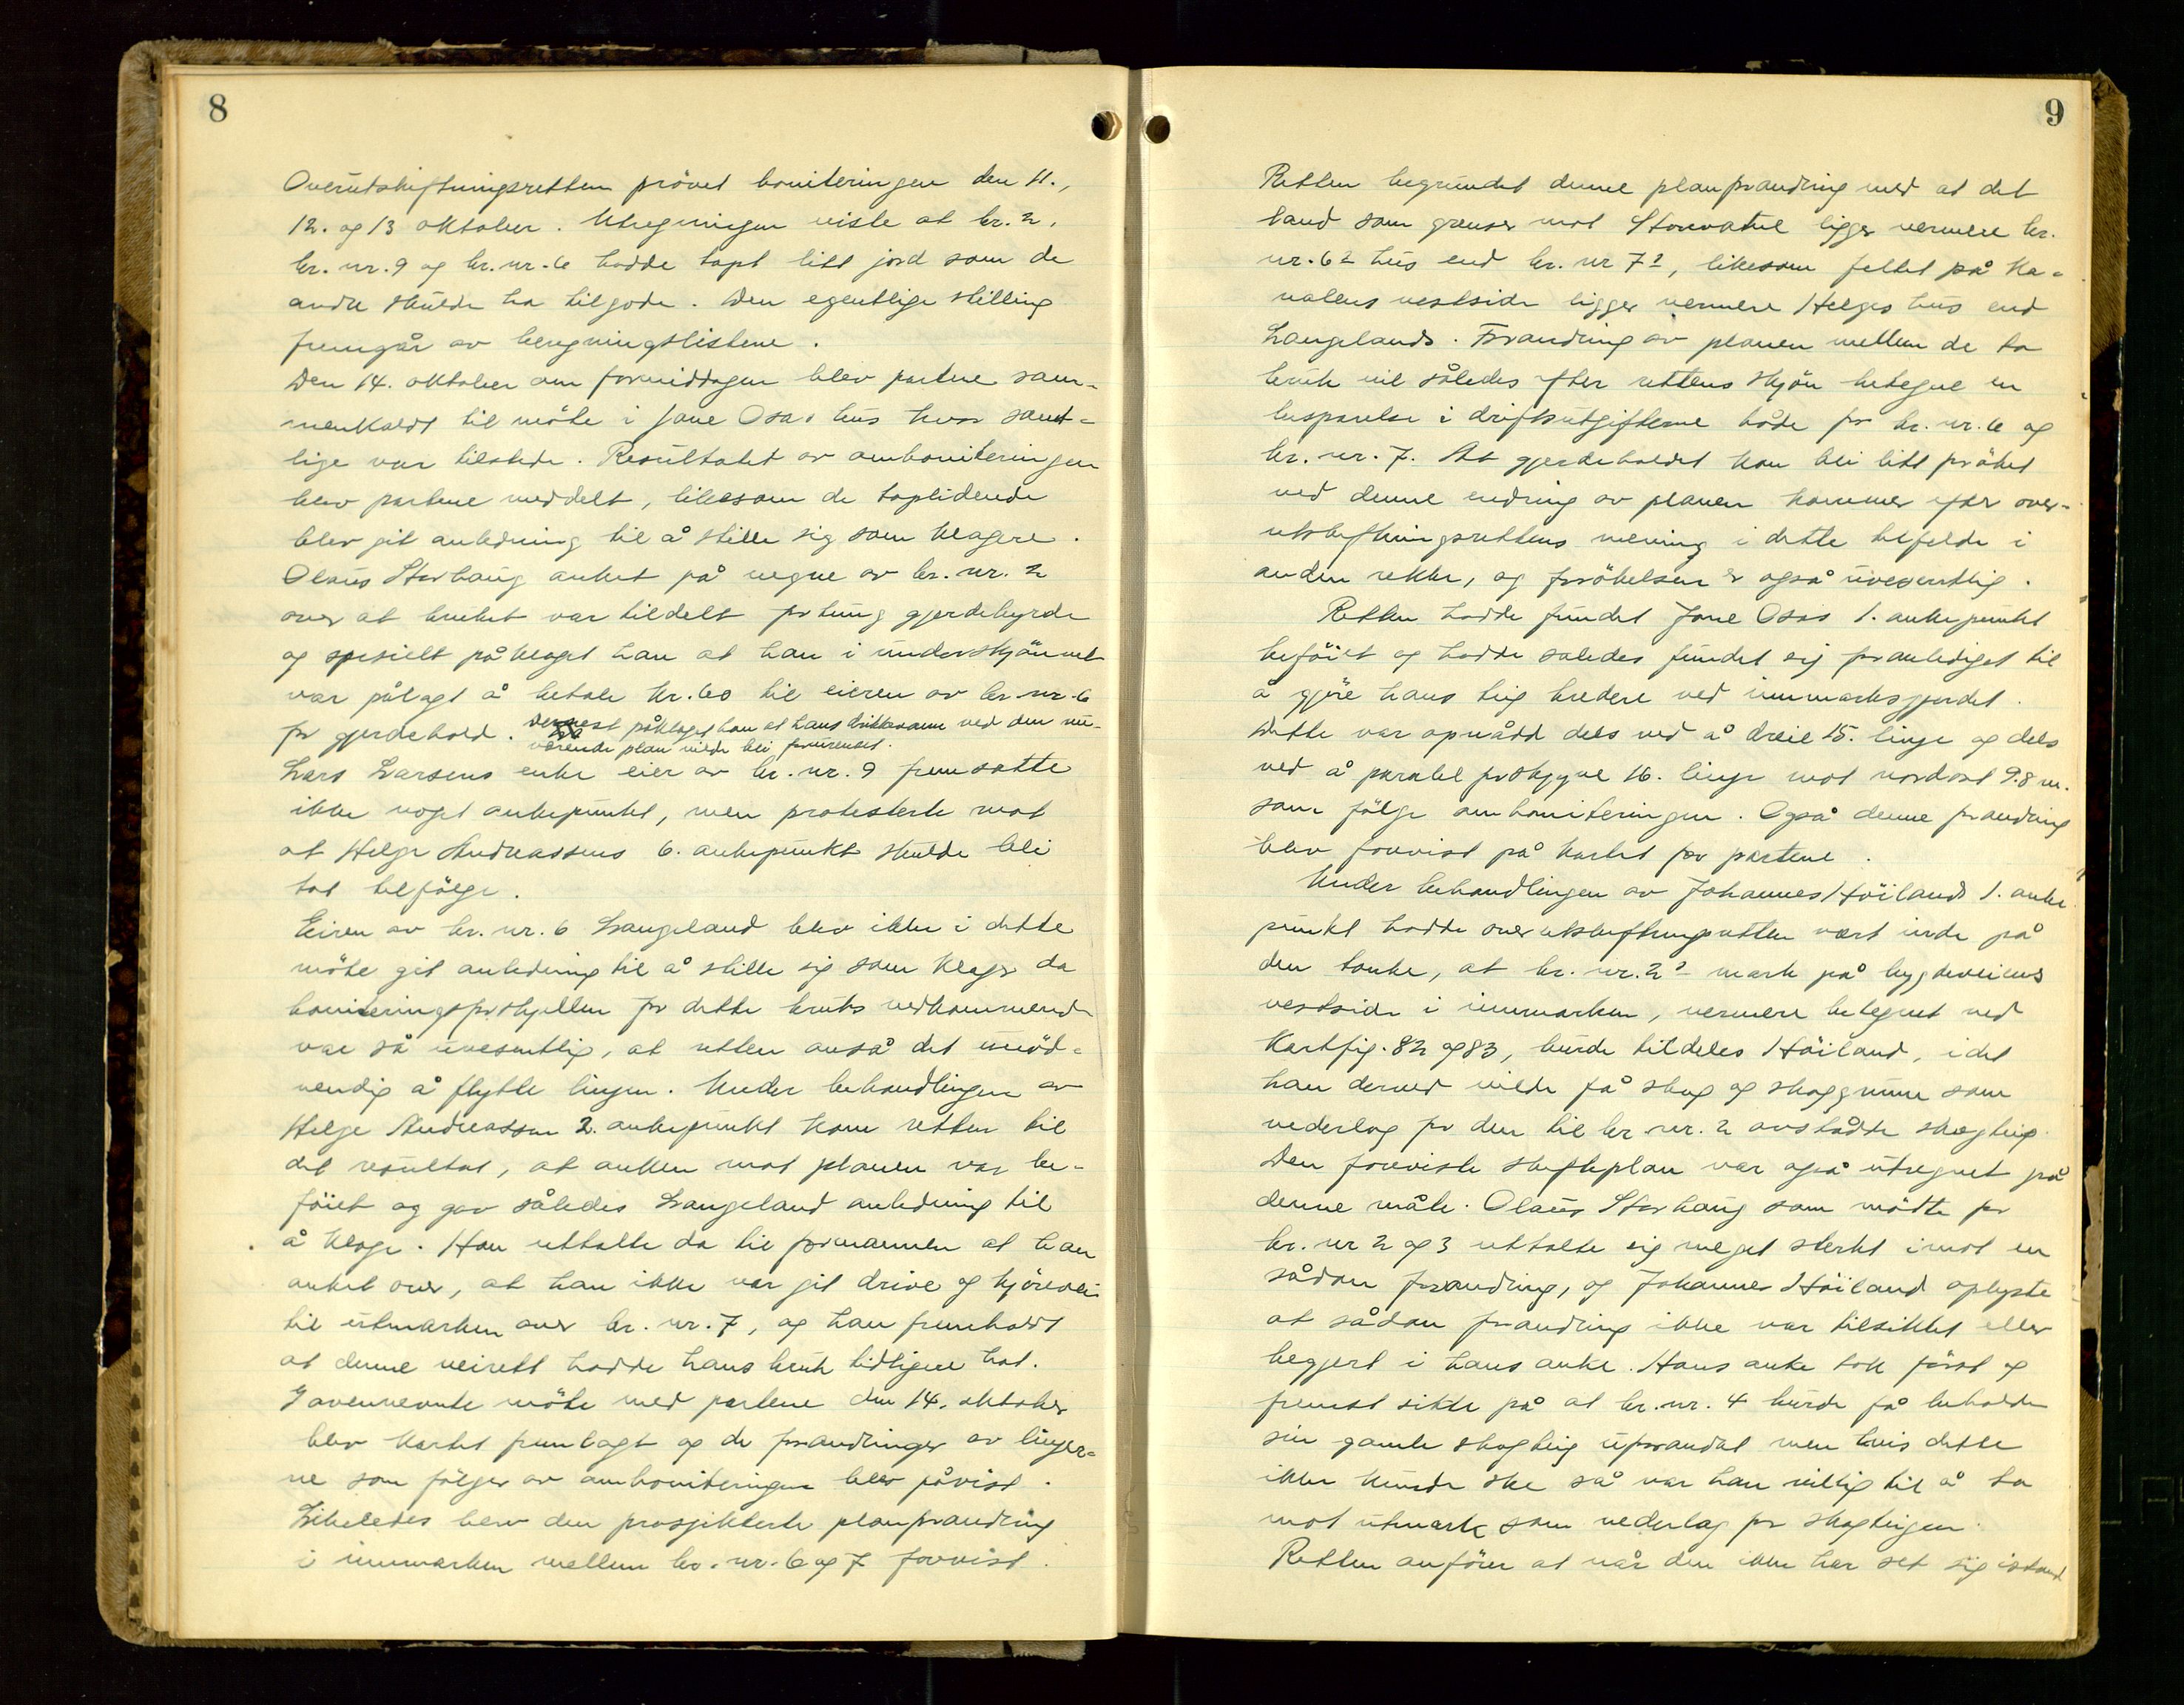 8
Overutskiftningsretten prövet boniteringen den 11.,
12. og 13 oktober. Utregningen viste at br. 2,
br. nr. 9 og br. nr. 6 hadde tapt litt jord som de
andre skulde ha tilgode. Den egentlige stilling
fremgår av beregningslistene.
Den 14. oktober om formiddagen blev partene sam-
menkaldt til möte i Jone Osas hus hvor samt-
lige var tilstede. Resultatet av omboniteringen
blev partene meddelt, likesom de taplidende
blev git anledning til å stille sig som klagere.
Olaus Storhaug anket på vegne av br. nr. 2
over at bruket var tildelt for tung gjerdebyrde
og spesielt påklaget han at han i underskjönnet
var pålagt å betale kr. 60 til eieren av br. nr. 6
for gjerdehold. Dernest påklaget han at hans drikkevann ved den nu-
værende plan vilde bli forurenset.
Lars Larsens enke eier av br. nr. 9 fremsatte
ikke noget ankepunkt, men protesterte mot
at Helge Andreassens 6. ankepunkt skulde bli
tat tilfölge.
Eiren av br. nr. 6 Langeland blev ikke i dette
möte git anledning til å stille sig som klager da
boniteringsforskjellen for dette bruks vedkommende
var så uvesentlig, at retten anså det unöd-
vendig å flytte linjen. Under behandlingen av
Helge Andreassen 2. ankepunkt kom retten til
det resultat, at anken mot planen var be-
föiet og gav således Langeland anledning til
å klage. Han uttalte da til formannen at han
anket over, at han ikke var git drive og kjörevei
til utmarken over br. nr. 7, og han fremholdt
at denne veirett hadde hans bruk tidligere hat.
I ovennevnte möte med partene den 14. oktober
blev kartet fremlagt og de forandringer av linjer-
ne som fölger av omboniteringen blev påvist.
Likeledes blev den prosjekterte planforandring
i innmarken mellem br. nr. 6 og 7 forevist.
9
Retten begrundet denne planforandring med at det
land som grenser mot Storvatne ligger nermere br.
nr. 6² hus end br. nr 7², likesom feltet på Ka-
nalens vestside ligger nermere Helges hus end
Langelands. Forandring av planen mellem de to
bruk vil således efter rettens skjön betegne en
besparelse i driftsutgifterne både for br. nr. 6 og
br. nr. 7. At gjerdeholdet kan bli litt forøket
ved denne endring av planen kommer efter over-
utskiftningsrettens mening i dette tilfelde i
anden rekke, og forökelsen er også uvesentlig.
Retten hadde fundet Jone Osas 1. ankepunkt
beföiet og hadde saledes fundet sig foranlediget til
å gjöre hans teig bredere ved innmarksgjerdet.
Dette var opnådd dels ved å dreie 15. linje og dels
ved å paralel forskyve 16. linje mot nordost 9.8 m.
som fölge omboniteringen. Også denne forandring
blev forevist på kartet for partene.
Under behandlingen av Johannes Höilands 1. anke
punkt hadde overutskiftningsretten vært inde på
den tanke, at br. nr. 2² mark på bygdeveiens
vestside i innmarken, nermere betegnet ved
Kartfig. 82 og 83, burde tildeles Höiland, idet
han derved vilde få skog og skoggrunn som
vederlag for den til br. nr. 2 avståtte skogteig.
Den foreviste skifteplan var også utregnet på
denne måte. Olaus Storhaug som mödte for
br. nr 2 og 3 uttalte sig meget sterkt imot en
sådan forandring, og Johannes Höiland oplyste
at sådan forandring ikke var tilsiktet eller
begjert i hans anke. Hans anke tok först og
fremst sikte på at br. nr. 4 burde få beholde
sin gamle skogteig uforandret men hvis dette
ikke kunde ske så var han villig til å ta
mot utmark som vederlag for skogteigen.
Retten anförer at når den ikke har set sig istand